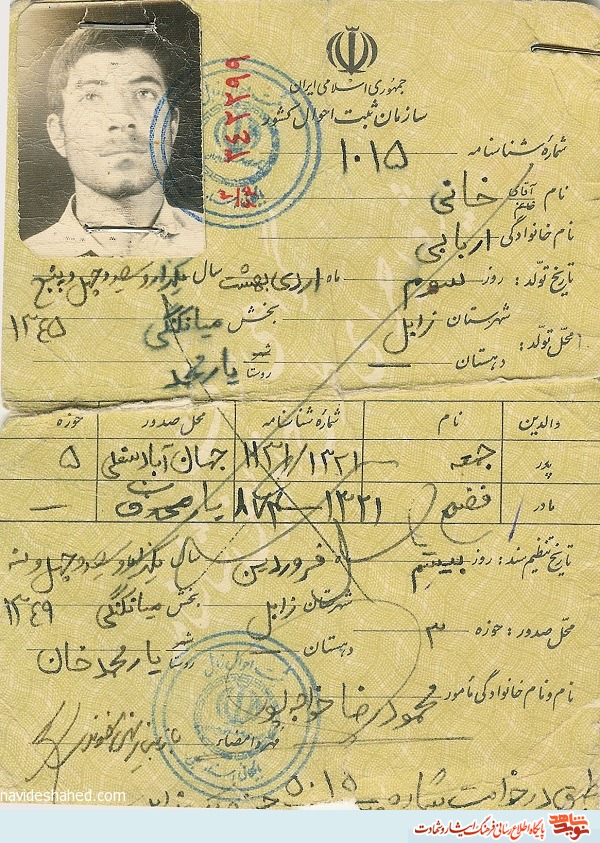 جمهوری اسلامی ایران
سازمان ثبت احوال کشور
شماره شناسنامه ۱۰۱۵
۶۹۲۲۴۸
نام آقای خانم خانی
نام خانوادگی اربابی
تاریخ تولد: روز سوم ماه اردی بهشت سال یکهزار و سیصد و چهل و پنج
۱۳۴۵
محل تولد: شهرستان زابل بخش میانکنگی
دهستان — شهر روستا یارمحمد
والدین نام شماره شناسنامه محل صدور حوزه
پدر جمعه جهان آباد سفلی ۵
مادر ۸۷۴-۱۳۲۱ —
تاریخ تنظیم سند: روز بیستم ماه فروردین سال یکهزار و سیصد و چهل و نه
۱۳۴۹
محل صدور: حوزه ۳ شهرستان زابل بخش میانکنگی
دهستان — شهر روستا یارمحمدخان
نام و نام خانوادگی مأمور محمودرضا خواجه پور
مهر و امضاء
طبق درخواست شماره ۵۰۱۵
navideshahed.com
نوید شاهد
پایگاه اطلاع رسانی فرهنگ ایثار و شهادت